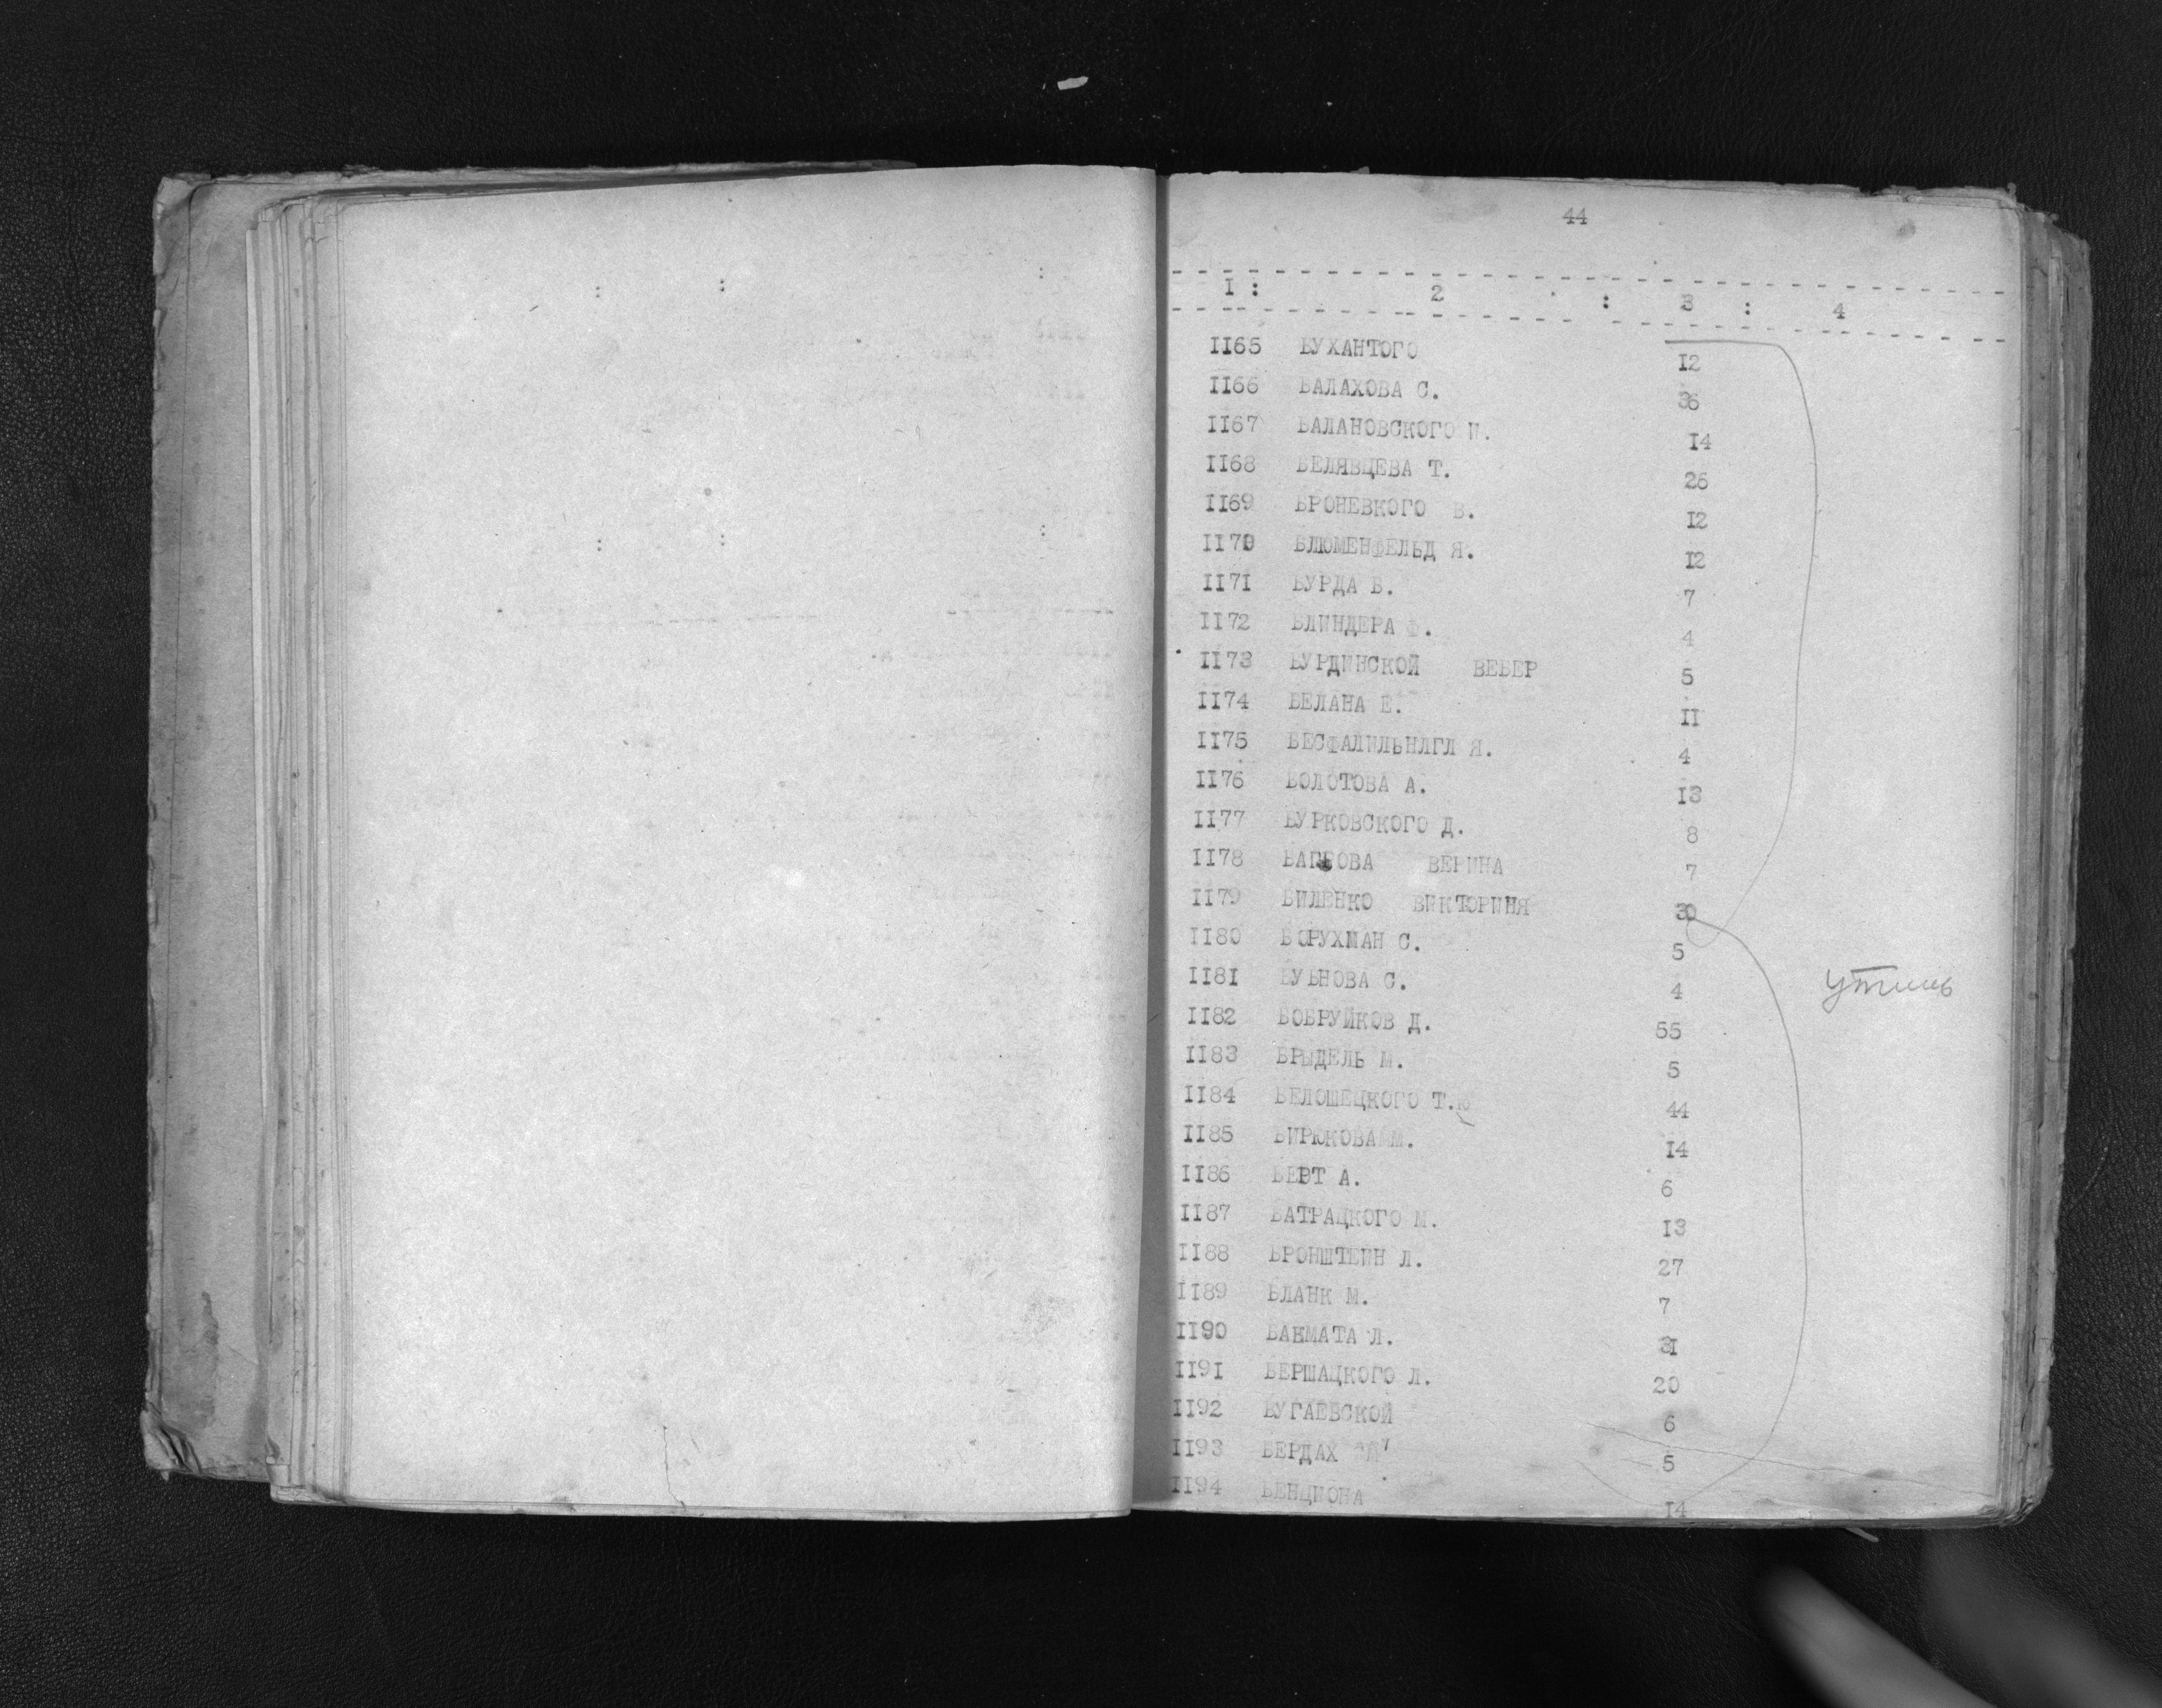 44
1 : 2 : 3 : 4
1165 БУХАНТОГО 12
1166 БАЛАХОВА С. 36
1167 БАЛАНОВСКОГО И. 14
1168 БЕЛЯВЦЕВА Т. 26
1169 БРОНЕВКОГО В. 12
1170 БЛЮМЕНФЕЛЬД Я. 12
1171 БУРДА Б. 7
1172 БЛИНДЕРА Ф. 4
1173 БУРДИНСКОЙ ВЕБЕР 5
1174 БЕЛАНА Е. 11
1175 Я. 4
1176 БОЛОТОВА А. 13
1177 БУРКОВСКОГО Д. 8
1178 ВЕРИНА 7
1179 БИЛЕНКО ВИКТОРИНЯ 30
1180 БОРУХМАН С. 5
1181 БУБНОВА С. 4
1182 БОБРУЙКОВ Д. 55
1183 БРЫДЕЛЬ М. 5
1184 БЕЛОШЕЦКОГО Т. 44
1185 БИРЮКОВА Ш. 14
1186 БЕРТ А. 6
1187 БАТРАЦКОГО М. 13
1188 БРОНШТЕЙН Л. 27
1189 БЛАНК М. 7
1190 БАХМАТА Л. 31
1191 БЕРШАДКОГО Л. 20
1192 БУГАЕВСКОЙ 6
1193 БЕРДАХ 5
1194 БЕНЦИОНА 14
утиль